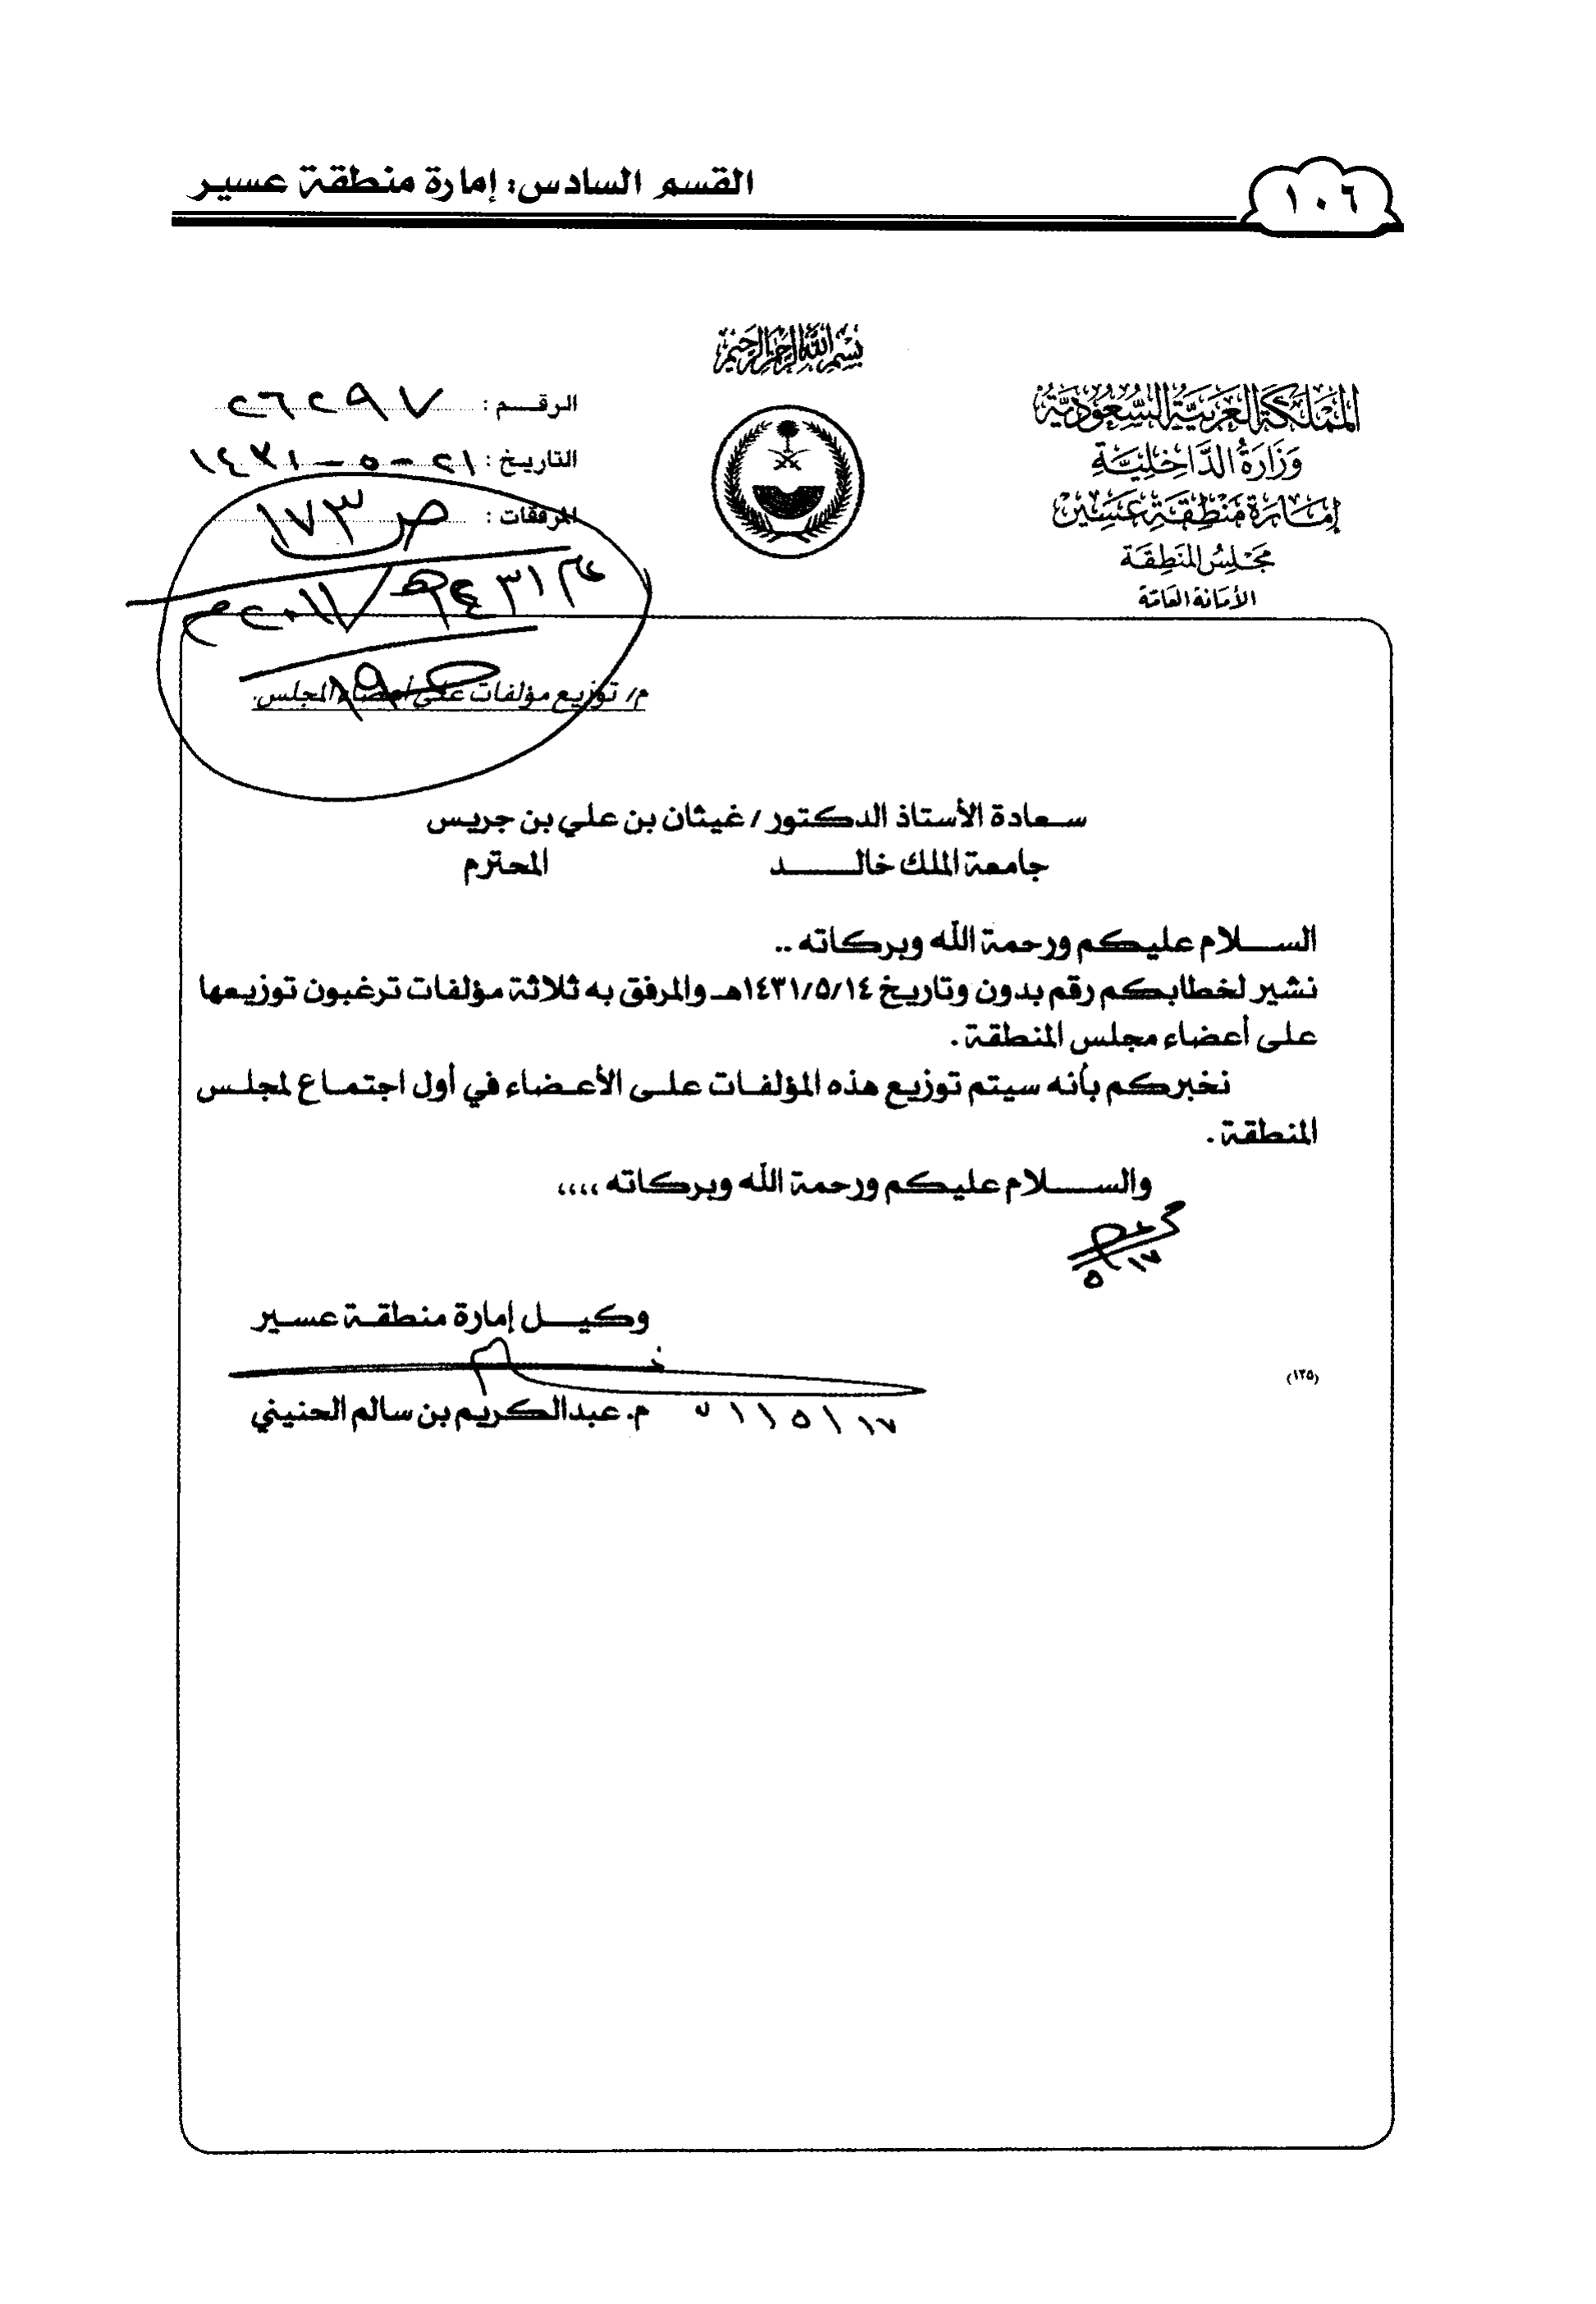 ١٠٦
القسم السادس: إمارة منطقة عسير
بسم الله الرحمن الرحيم
المملكة العربية السعودية
وزارة الداخلية
إمارة منطقة عسير
مجلس المنطقة
الأمانة العامة
الرقم : ٢٦٢٩٧
التاريخ : ٢١-٥-١٤٣١
المرفقات :
ص ١٧٣
١٤٣١هـ / ٢٠١١م
م/ توزيع مؤلفات على أعضاء المجلس.
سعادة الأستاذ الدكتور / غيثان بن علي بن جريس
جامعة الملك خالد المحترم
السلام عليكم ورحمة الله وبركاته ..
نشير لخطابكم رقم بدون وتاريخ ١٤٣١/٥/١٤هـ والمرفق به ثلاثة مؤلفات ترغبون توزيعها
على أعضاء مجلس المنطقة .
نخبركم بأنه سيتم توزيع هذه المؤلفات على الأعضاء في أول اجتماع لمجلس
المنطقة .
والسلام عليكم ورحمة الله وبركاته ،،،،
١٧
٥
وكيل إمارة منطقة عسير
م. عبدالكريم بن سالم الحنيني
(١٢٥)